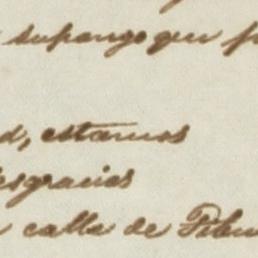 supongo que
d, estamos
esgracias
calle de